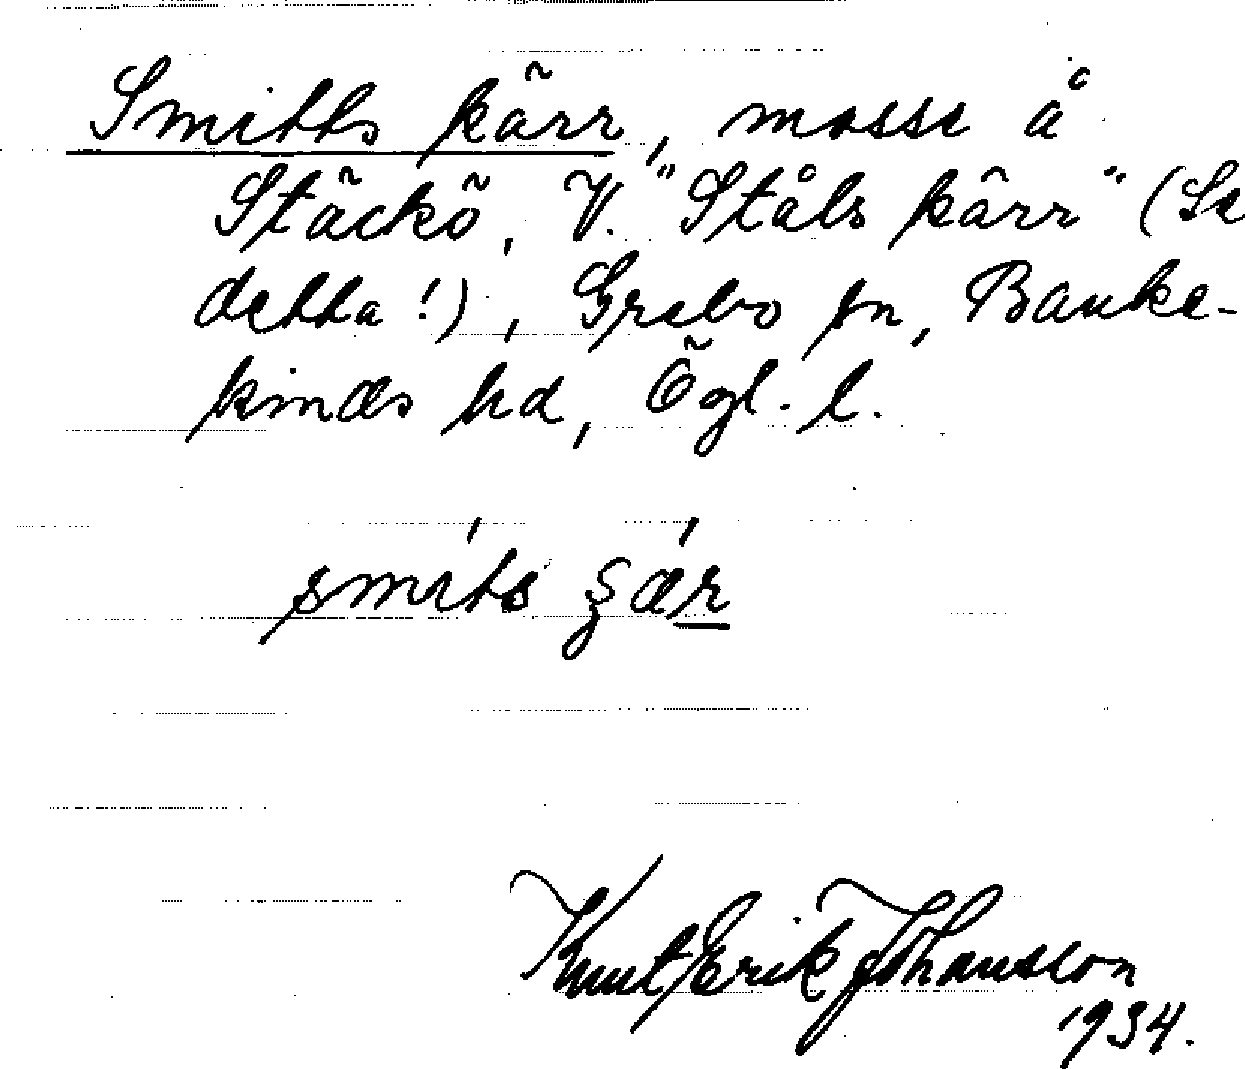 Smitts kärr, mosse å
Stäckö, V. "Ståls kärr" (Se
detta!), Grebo sn, Banke-
kinds hd, Ögl. l.
smits
Knut Erik Johansson
1934.